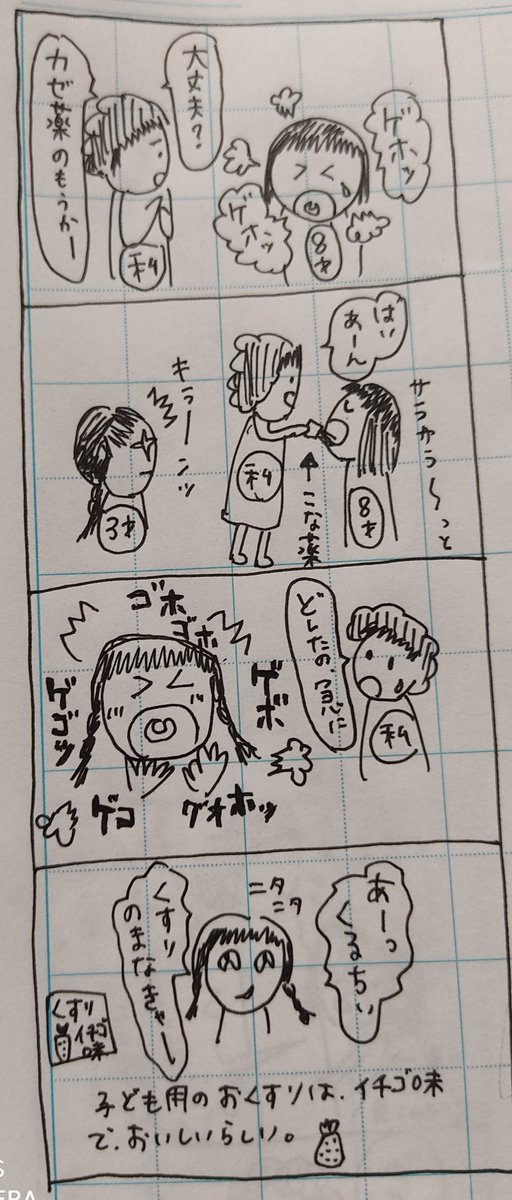 ゲホッ
ゲホッ
8才
大丈夫?
カゼ薬のもうかー
私
サラサラ〜っと
はい
あーん
8才
こな薬
私
キラーンッ
3才
どしたの、急に
私
ゴホ
ゴホ
ゲボ
ゲゴッ
ゲコ
グオホッ
あーっ
くるちぃ
ニタ
ニタ
くすり
のまなきゃー
くすり
イチゴ
味
子ども用のおくすりは、イチゴ味
で、おいしいらしい。